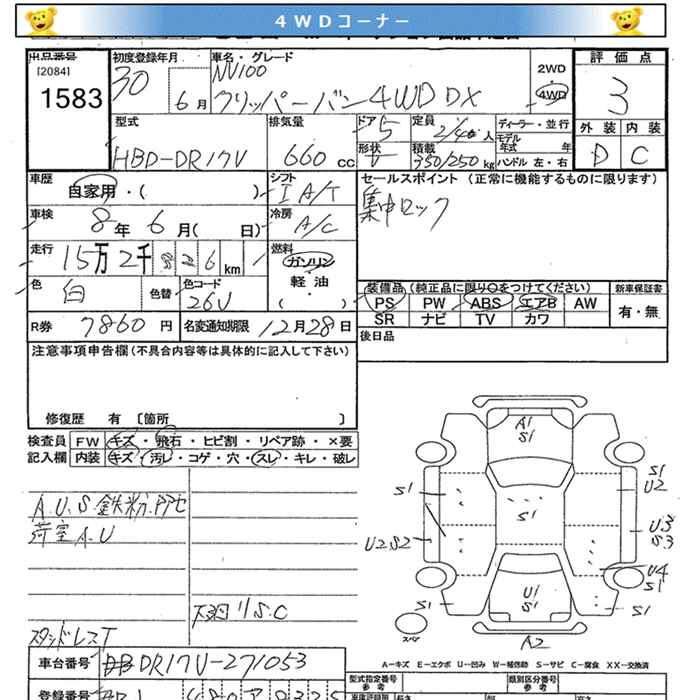 4WDコーナー
出品番号
[2084]
1583
初度登録年月
30
6月
車名・グレード
NV100
クリッパーバン4WD DX
2WD
4WD
評価点
3
外装 内装
D C
型式
HBD-DR17V
排気量
660 cc
ドア
5
形状
V
定員
2/4名 人
積載
350/250 kg
ディーラー・並行
モデル年式 年
ハンドル 左・右
車歴
自家用・( )
シフト
I A/T
車検
8年 6月( 日)
冷房
A/C
走行
15万2千826km
燃料
ガソリン
軽油
( )
色
白
色替
色コード
26U
R券
7860円
名変通知期限
12月28日
セールスポイント (正常に機能するものに限ります)
集中ロック
装備品 (純正品に限り○をつけてください)
新車保証書
PS PW ABS エアB AW
SR ナビ TV カワ
有・無
後日品
注意事項申告欄 (不具合内容等は具体的に記入して下さい)
修復歴 有 [箇所 ]
検査員記入欄
FW キズ・飛石・ヒビ割・リペア跡・×要
内装 キズ・汚レ・コゲ・穴・スレ・キレ・破レ
A.U.S.鉄粉
荷室A.U
リS.C
スタッドレスT
A1
S1
S1
U2
S1
S1
U3
S3
U2.S2
U4
S1
U1
S1
S1
S1
スペア
A2
A…キズ E…エクボ U…凹み W…補修跡 S…サビ C…腐食 XX…交換済
車台番号
DR17V-271053
型式指定番号
参考
類別区分番号
参考
登録番号